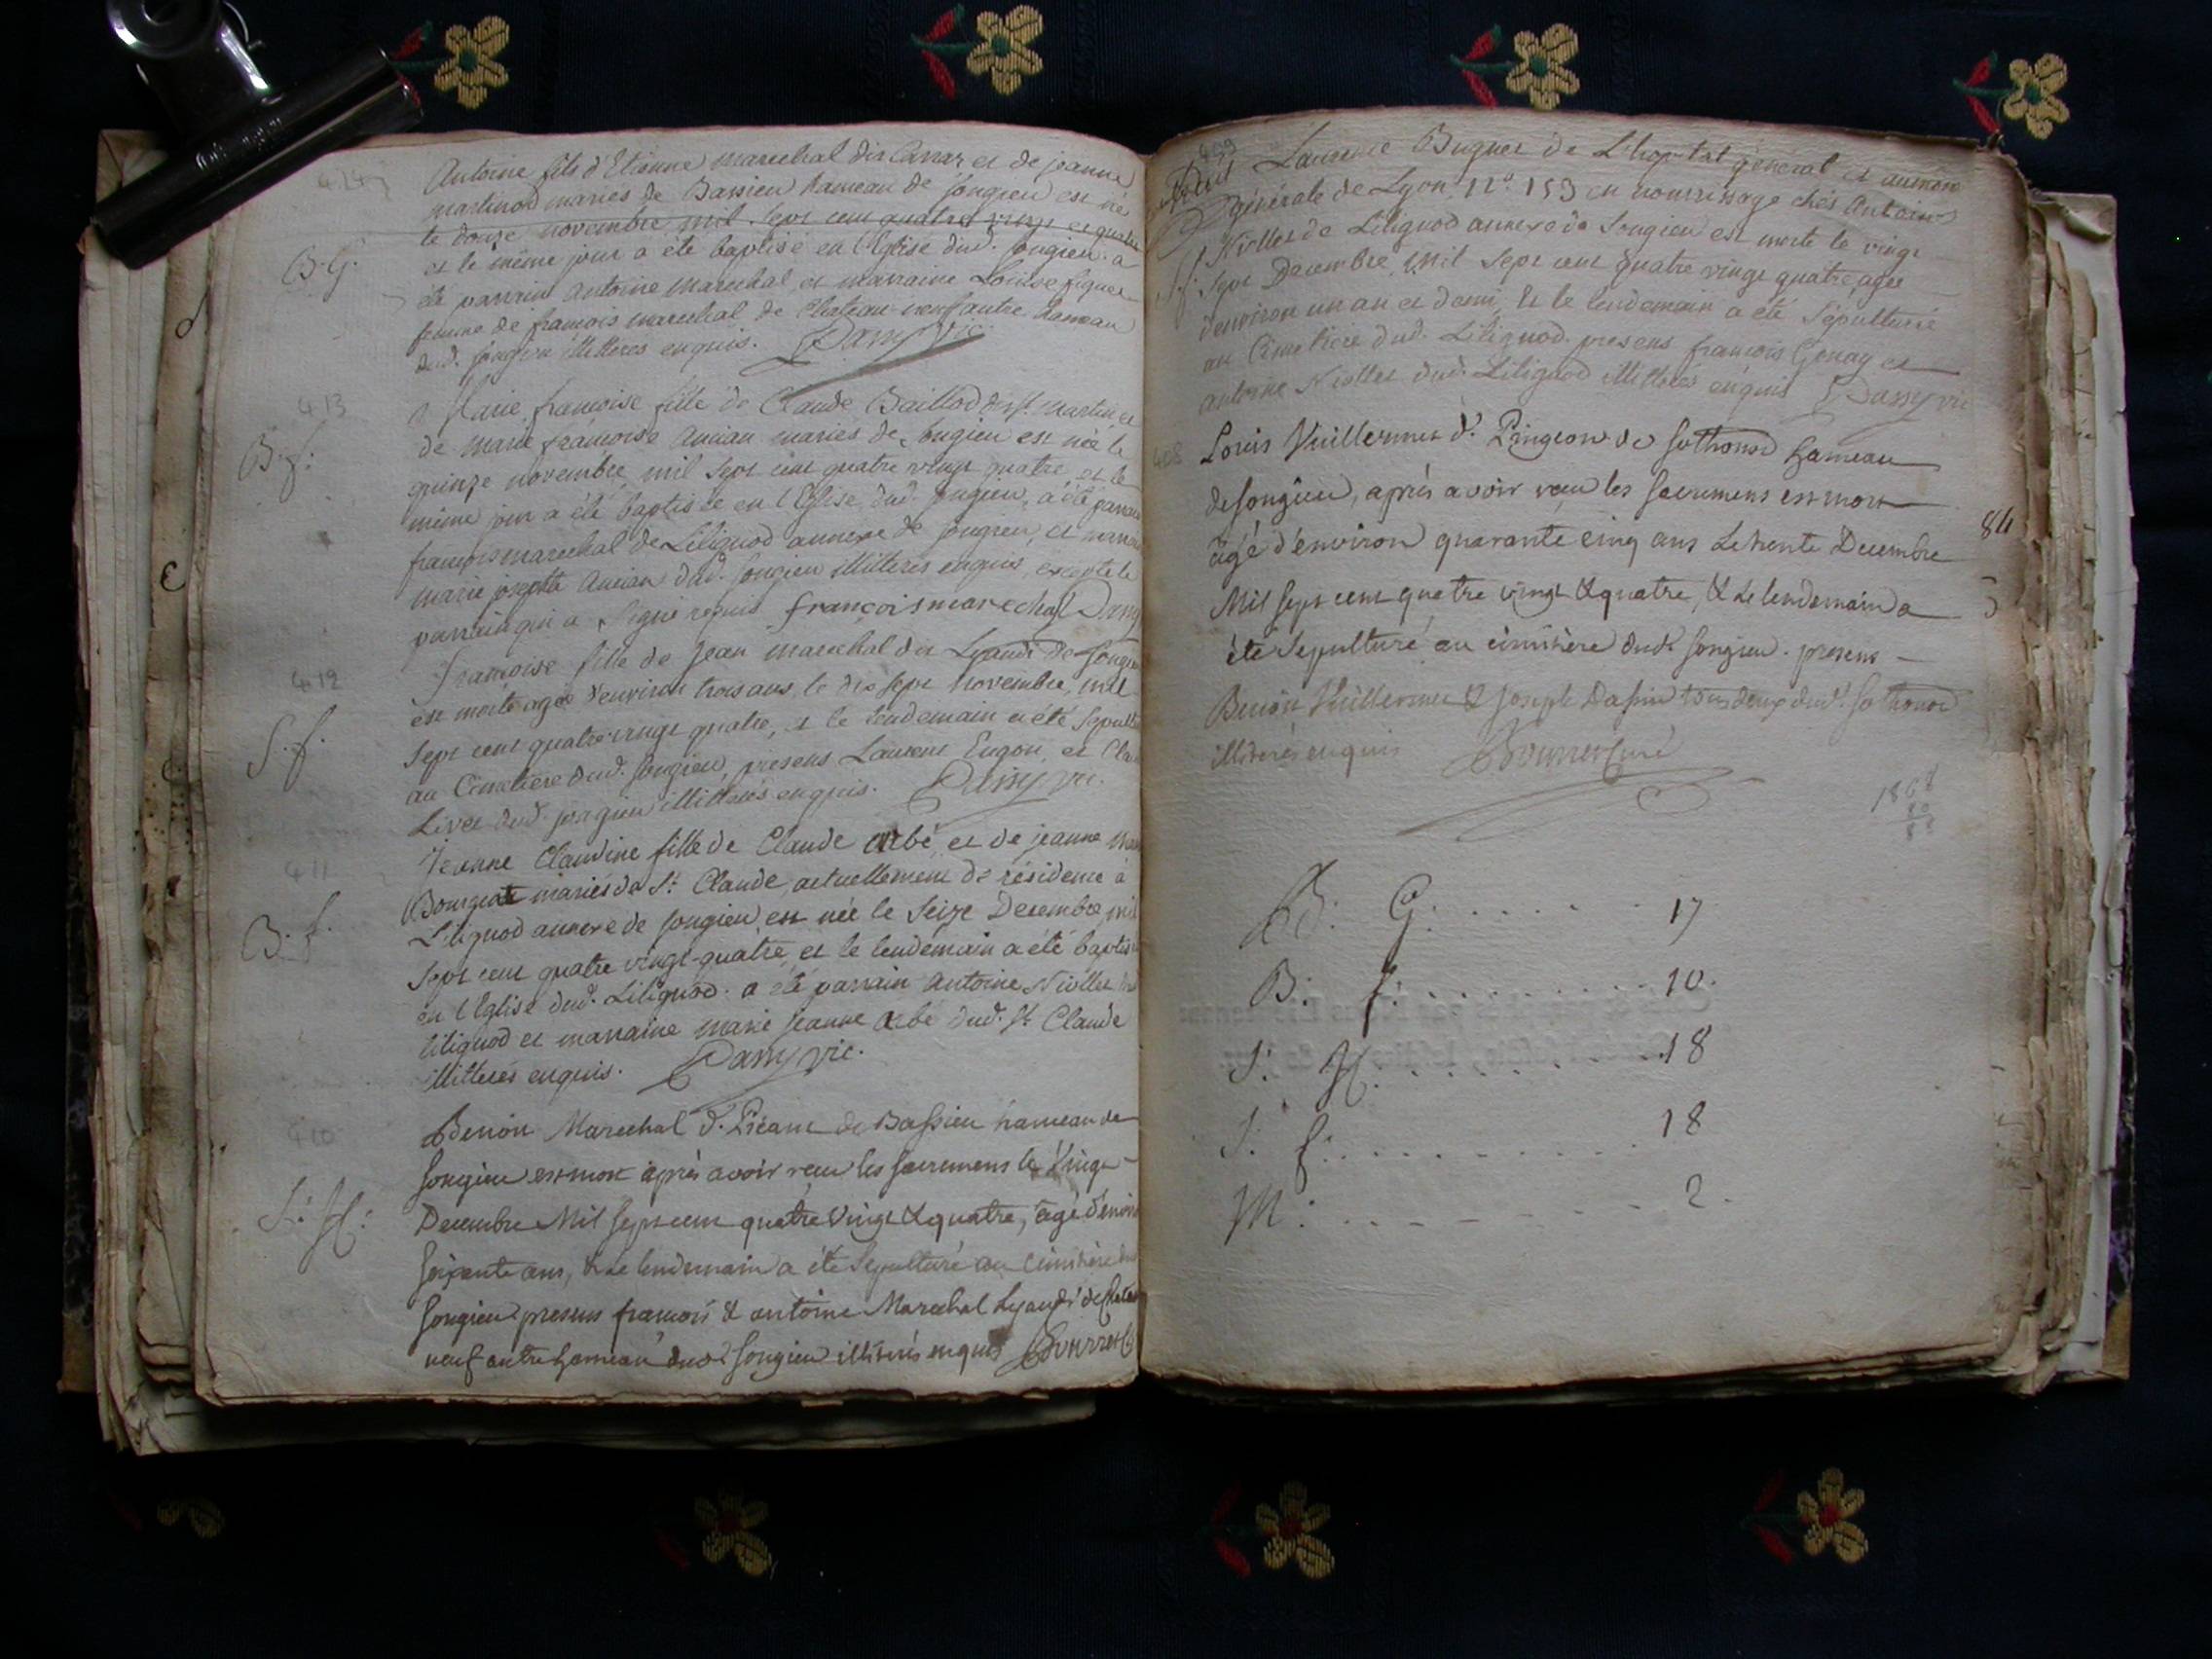 414
Antoine fils d'Etienne marechal dit Carraz et de jeanne
martinod mariés de Bassieu hameau de songieu est né
le douze novembre mil sept cent quatre vingt et quatre
B. G.
et le même jour a été baptisé en l'Eglise dud. songieu. a
été parrain Antoine marechal, et marraine Louise
femme de francois marechal de Chateau-neuf autre hameau
dud. songieu illitterés enquis. Dassy vic.
413
Marie francoise fille de Claude Baillod dit st. martin, et
B. f.
de marie francoise Ancian mariés de songieu est née le
quinze novembre mil sept cent quatre vingt quatre, et le
même jour a été baptisée en l'Eglise dud. songieu, a été parrain
francois marechal de Lilignod annexe de songieu, et marraine
marie josephte Ancian dud. songieu illitterés enquis excepté le
parrain qui a signé requis. françois marechal Dassy
412
francoise fille de Jean marechal dit Lyaudi de songieu
est morte agée d'environ trois ans, le dix sept novembre, mil
S. f.
sept cent quatre-vingt quatre, et le lendemain a été sepulturée
au Cimetiere dud. songieu, presens Laurent Eugon, et
Livet dud. songieu illitterés enquis. Dassy vic.
411
Jeanne Claudine fille de Claude Orbé, et de jeanne
Bourgeat mariés de St. Claude, actuellement de résidence à
B. f.
Lilignod annexe de songieu, est née le seize Decembre, mil
sept cent quatre vingt-quatre, et le lendemain a été baptisée
en l'Eglise dud. Lilignod. a été parrain Antoine Niollet dud
lilignod et marraine marie jeanne Orbé dud. St. Claude
illitterés enquis. Dassy vic.
410
Benoit Marechal d. de Bassieu hameau de
Songieu est mort après avoir recu les sacremens le vingt
S. H.
Decembre Mil sept cent quatre vingt & quatre, âgé d'environ
soixante ans, & le lendemain a été sepulturé au cimitière dud
Songieu presens francois & antoine Marechal Lyaudi de Chateau
neuf autre hameau dud songieu illiterés enquis Bourret C
409
Laurence Bugnet de L'hopital général et aumone
générale de Lyon, N° 153 en nourrissage chés Antoine
S. f.
Niollet de Lilignod annexe de songieu est morte le vingt
sept Decembre, mil sept cent quatre vingt quatre agée
d'environ un an et demi, Et le lendemain a été sépulturée
au Cimetiere dud. Lilignod. presens francois Genay et
antoine Niollet dud. Lilignod illitterés enquis Dassy vic
408
Louis Vuillermet d. Pingeon de Sothonod hameau
de songieu, après avoir recu les sacremens est mort
âgé d'environ quarante cinq ans Le trente Decembre
84
Mil sept cent quatre vingt & quatre, & Le lendemain a
été sepulturé au cimitière dudt songieu. presens
Benoit Vuillermet & joseph tous deux dud. Sothonod
illiterés enquis Bourret Curé
1868
B. G. . . . . . 17
B. f. . . . . . 10.
S. H. . . . . . 18
S. f. . . . . . 18
M. . . . . . 2.